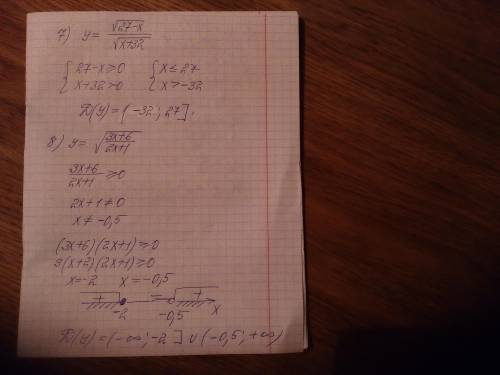 7) y = √(27-x) / √(x+32)
{ 27-x ≥ 0 { x ≤ 27
{ x+32 > 0 { x > -32
D(y) = (-32; 27].
8) y = √((3x+6)/(2x+1))
(3x+6)/(2x+1) ≥ 0
2x+1 ≠ 0
x ≠ -0,5
(3x+6)(2x+1) ≥ 0
3(x+2)(2x+1) ≥ 0
x=-2 x = -0,5
+ − +
-2 -0,5 x
D(y) = (-∞; -2] ∪ (-0,5; +∞)